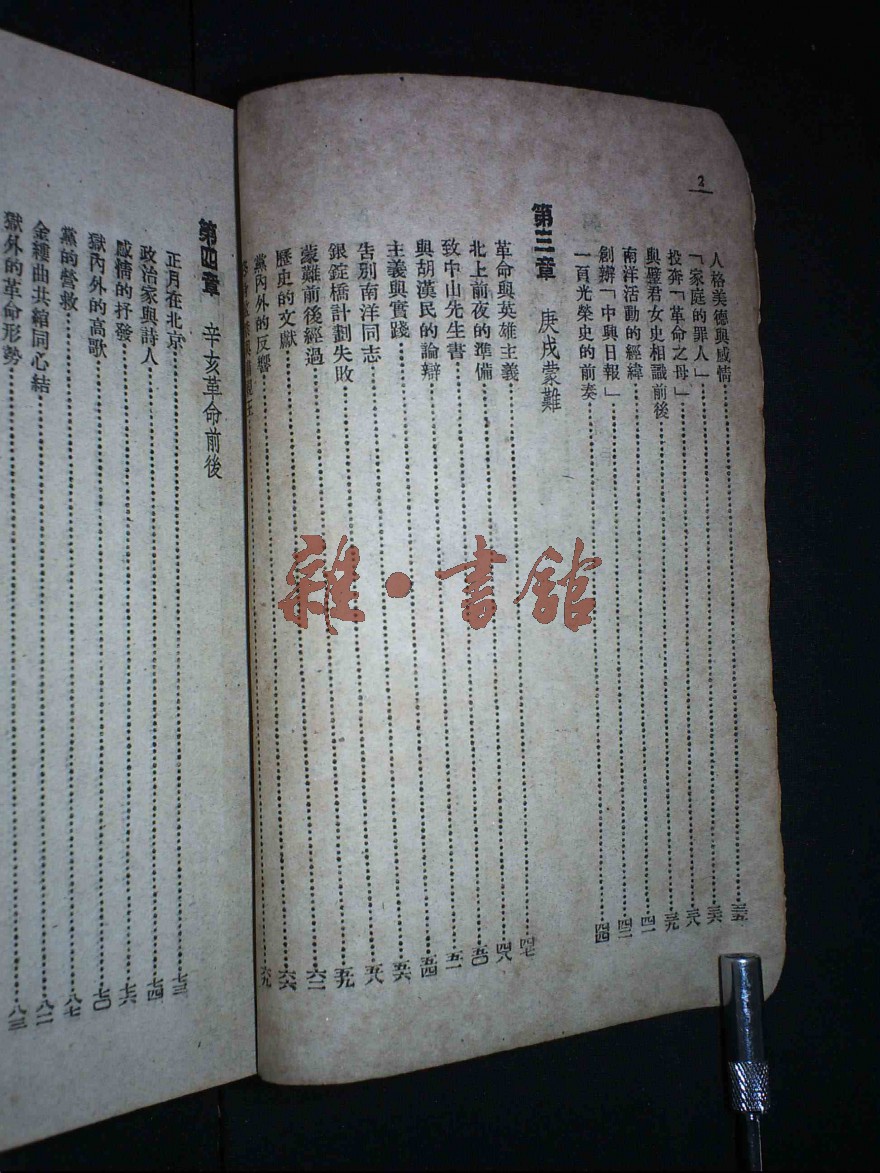 2
人格美德與感情 三五
「家庭的罪人」 三六
投奔「革命之母」 三八
與璧君女史相識前後 三九
南洋活動的經緯 四一
創辦「中興日報」 四二
一頁光榮史的前奏 四四
第三章 庚戌蒙難 四七
革命與英雄主義 四八
北上前夜的準備 五〇
致中山先生書 五一
與胡漢民的論辯 五四
主義與實踐 五六
告別南洋同志 五八
銀錠橋計劃失敗 五九
蒙難前後經過 六二
歷史的文獻 六六
黨內外的反響 六九
第四章 辛亥革命前後
正月在北京 七三
政治家與詩人 七四
感情的抒發 七六
獄內外的高歌 七〇
黨的營救 八七
金縷曲共綰同心結 八二
獄外的革命形勢 八三
雜·書館